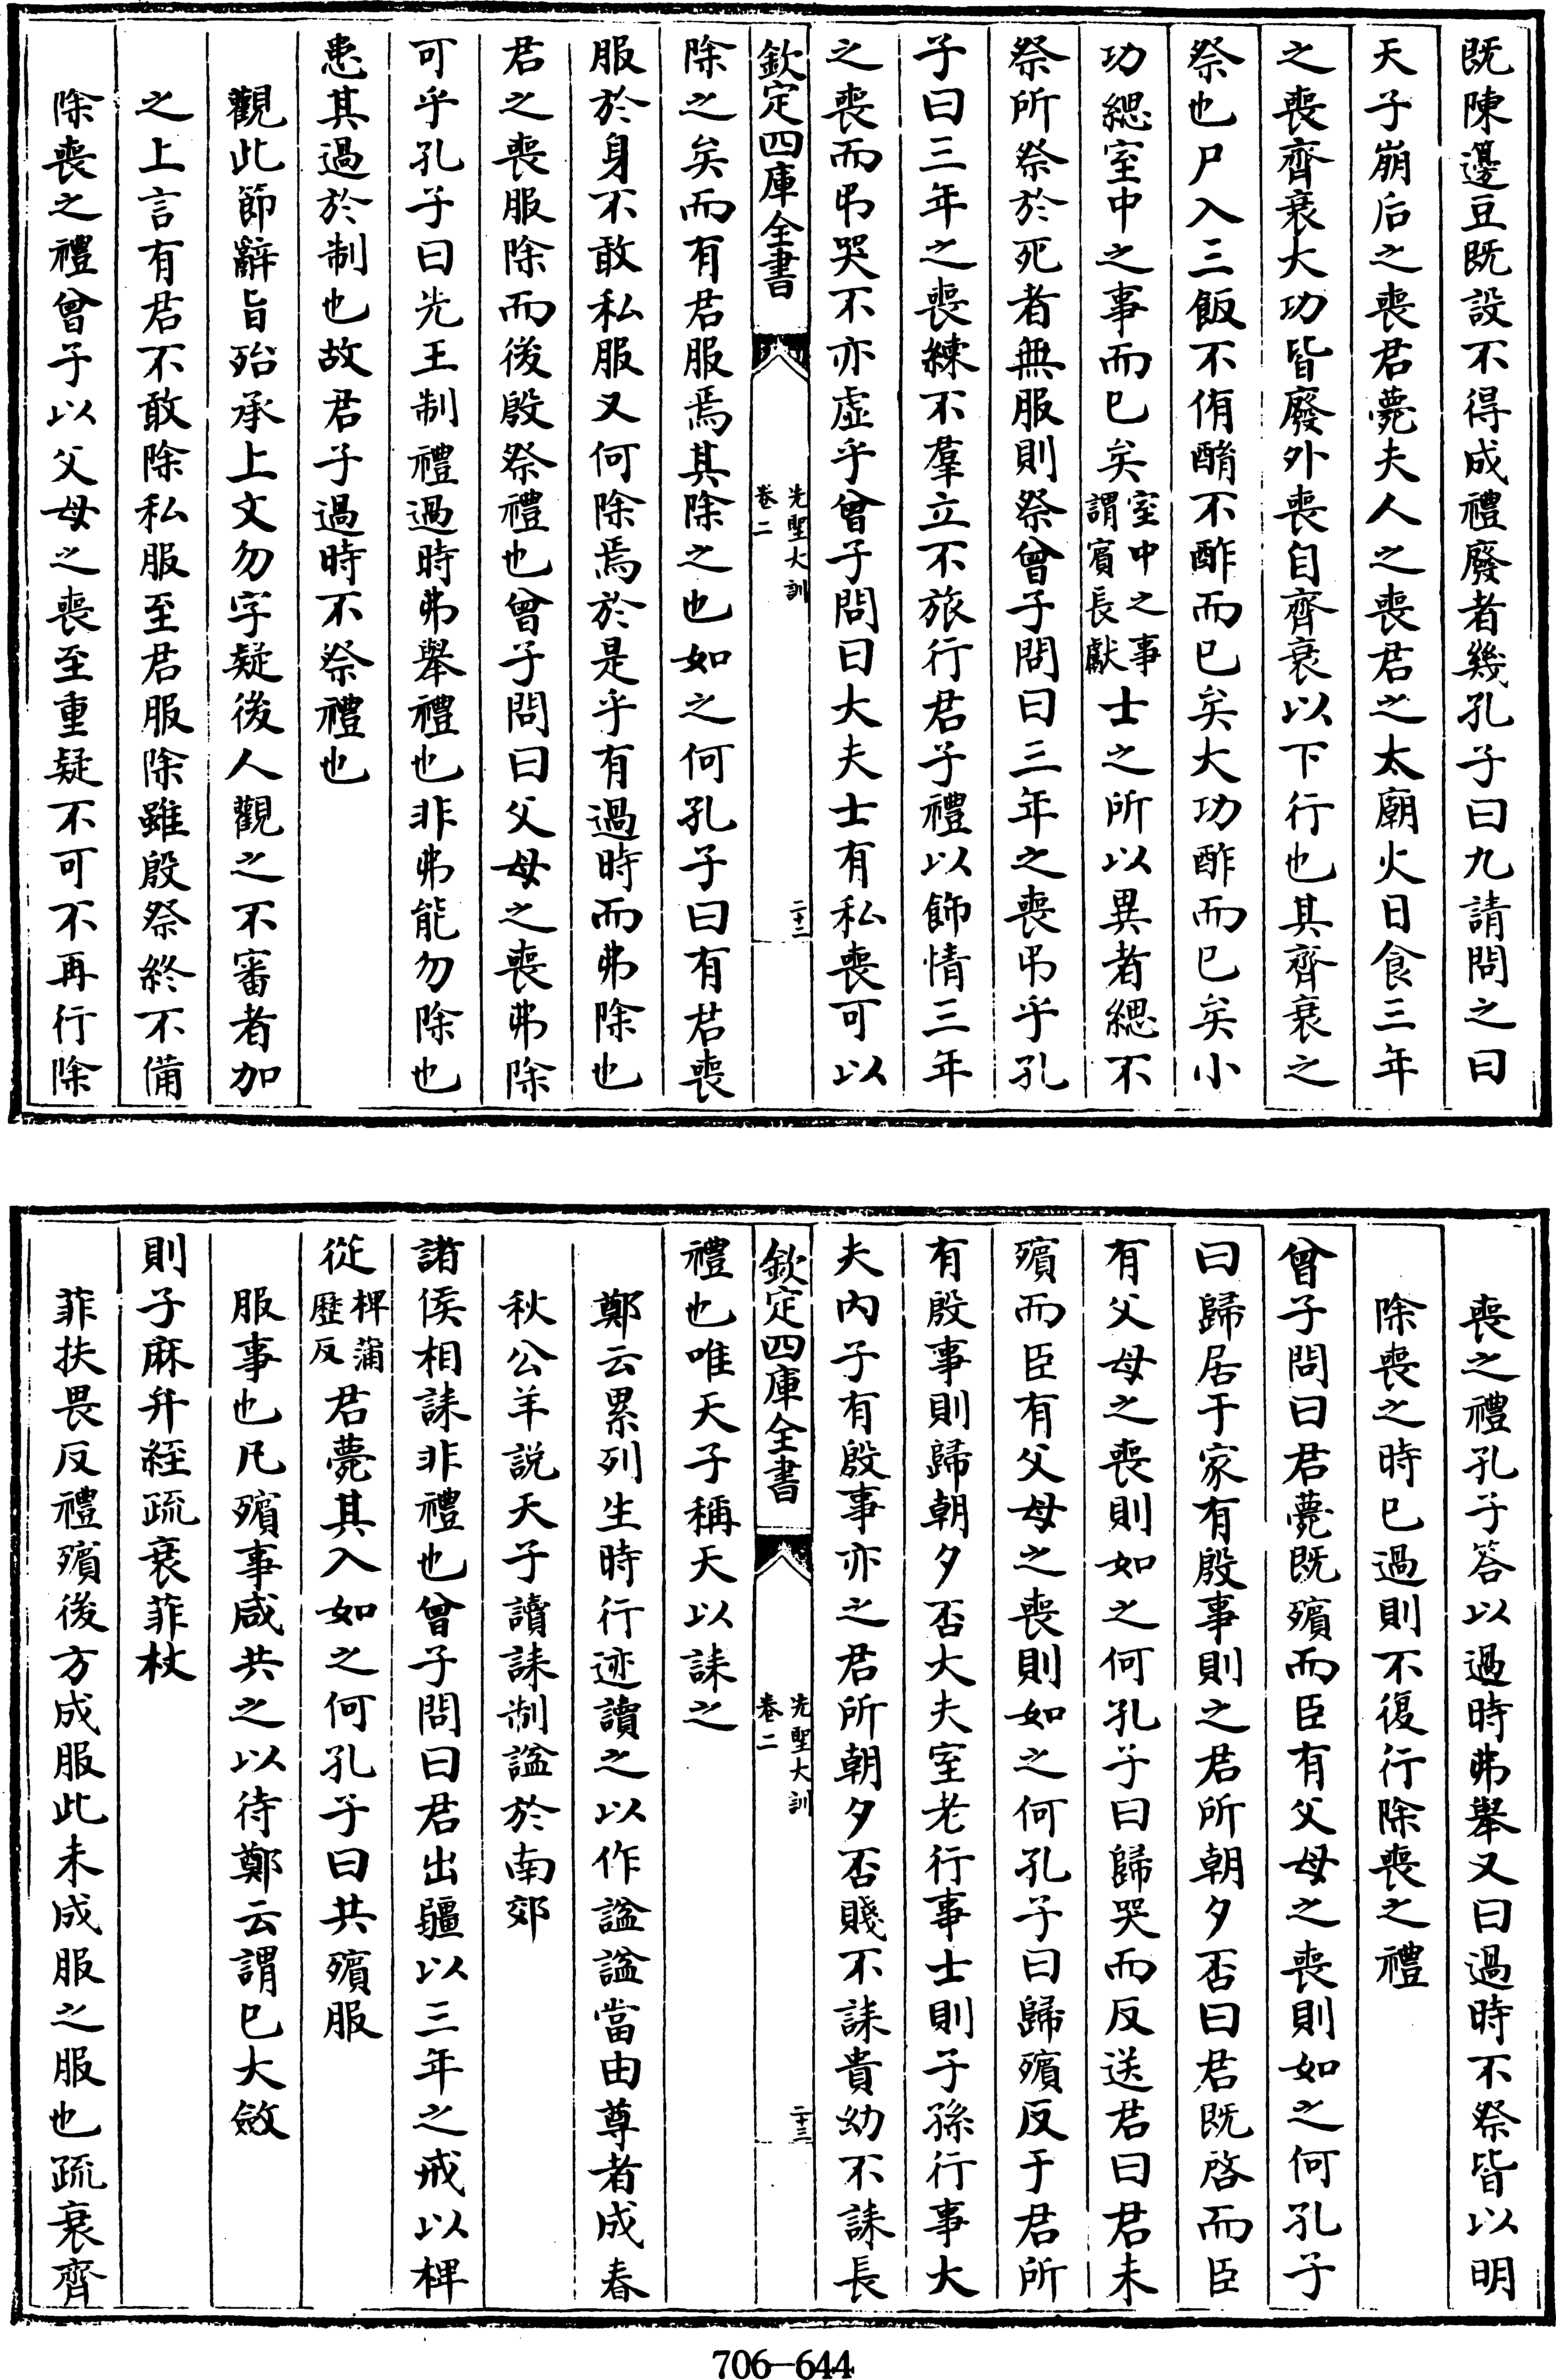 既陳邊豆既設不得成禮廢者幾孔子曰九請問之曰
天子崩后之喪君薨夫人之喪君之太廟火日食三年
之喪齊衰大功皆廢外喪自齊衰以下行也其齊衰之
祭也尸入三飯不侑酳不酢而已矣大功酢而已矣小
功緦室中之事而已矣室中之事謂賓長獻士之所以異者緦不
祭所祭於死者無服則祭曾子問曰三年之喪弔乎孔
子曰三年之喪練不羣立不旅行君子禮以飾情三年
之喪而弔哭不亦虛乎曾子問曰大夫士有私喪可以
欽定四庫全書 先聖大訓 卷二 二十二
除之矣而有君服焉其除之也如之何孔子曰有君喪
服於身不敢私服又何除焉於是乎有過時而弗除也
君之喪服除而後殷祭禮也曾子問曰父母之喪弗除
可乎孔子曰先王制禮過時弗舉禮也非弗能勿除也
患其過於制也故君子過時不祭禮也
觀此節辭旨殆承上文勿字疑後人觀之不審者加
之上言有君不敢除私服至君服除雖殷祭終不備
除喪之禮曾子以父母之喪至重疑不可不再行除
喪之禮孔子答以過時弗舉又曰過時不祭皆以明
除喪之時已過則不復行除喪之禮
曾子問曰君薨既殯而臣有父母之喪則如之何孔子
曰歸居于家有殷事則之君所朝夕否曰君既啓而臣
有父母之喪則如之何孔子曰歸哭而反送君曰君未
殯而臣有父母之喪則如之何孔子曰歸殯反于君所
有殷事則歸朝夕否大夫室老行事士則子孫行事大
夫内子有殷事亦之君所朝夕否賤不誄貴幼不誄長
欽定四庫全書 先聖大訓 卷二 二十三
禮也唯天子稱天以誄之
鄭云累列生時行迹讀之以作諡諡當由尊者成春
秋公羊説天子讀誄制諡於南郊
諸侯相誄非禮也曾子問曰君出疆以三年之戒以椑
從椑蒲歷反君薨其入如之何孔子曰共殯服
服事也凡殯事咸共之以待鄭云謂已大斂
則子麻弁絰疏衰菲杖
菲扶畏反禮殯後方成服此未成服之服也疏衰齊
706-644